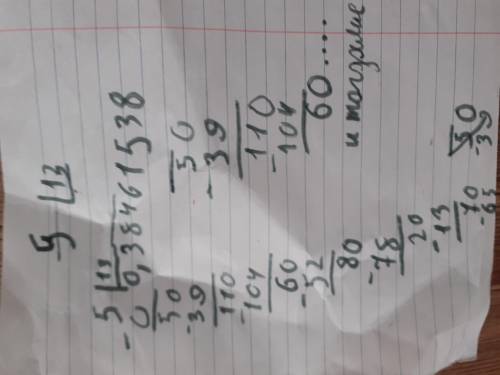 5 | 13
- 5 | 13
0 0,38461538
50
- 39
110
- 104
60
- 52
80
- 78
20
- 13
70
- 65
50
- 39
50
- 39
110
- 104
60.....
и тогдалие